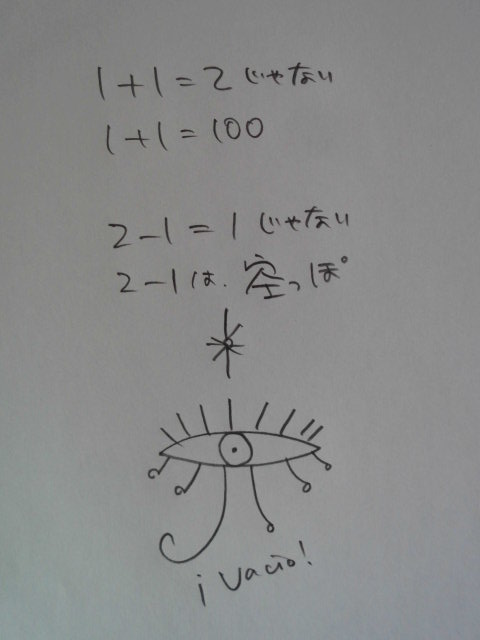 1+1=2じゃない
1+1=100
2-1=1じゃない
2-1は.空っぽ
¡Vacio!